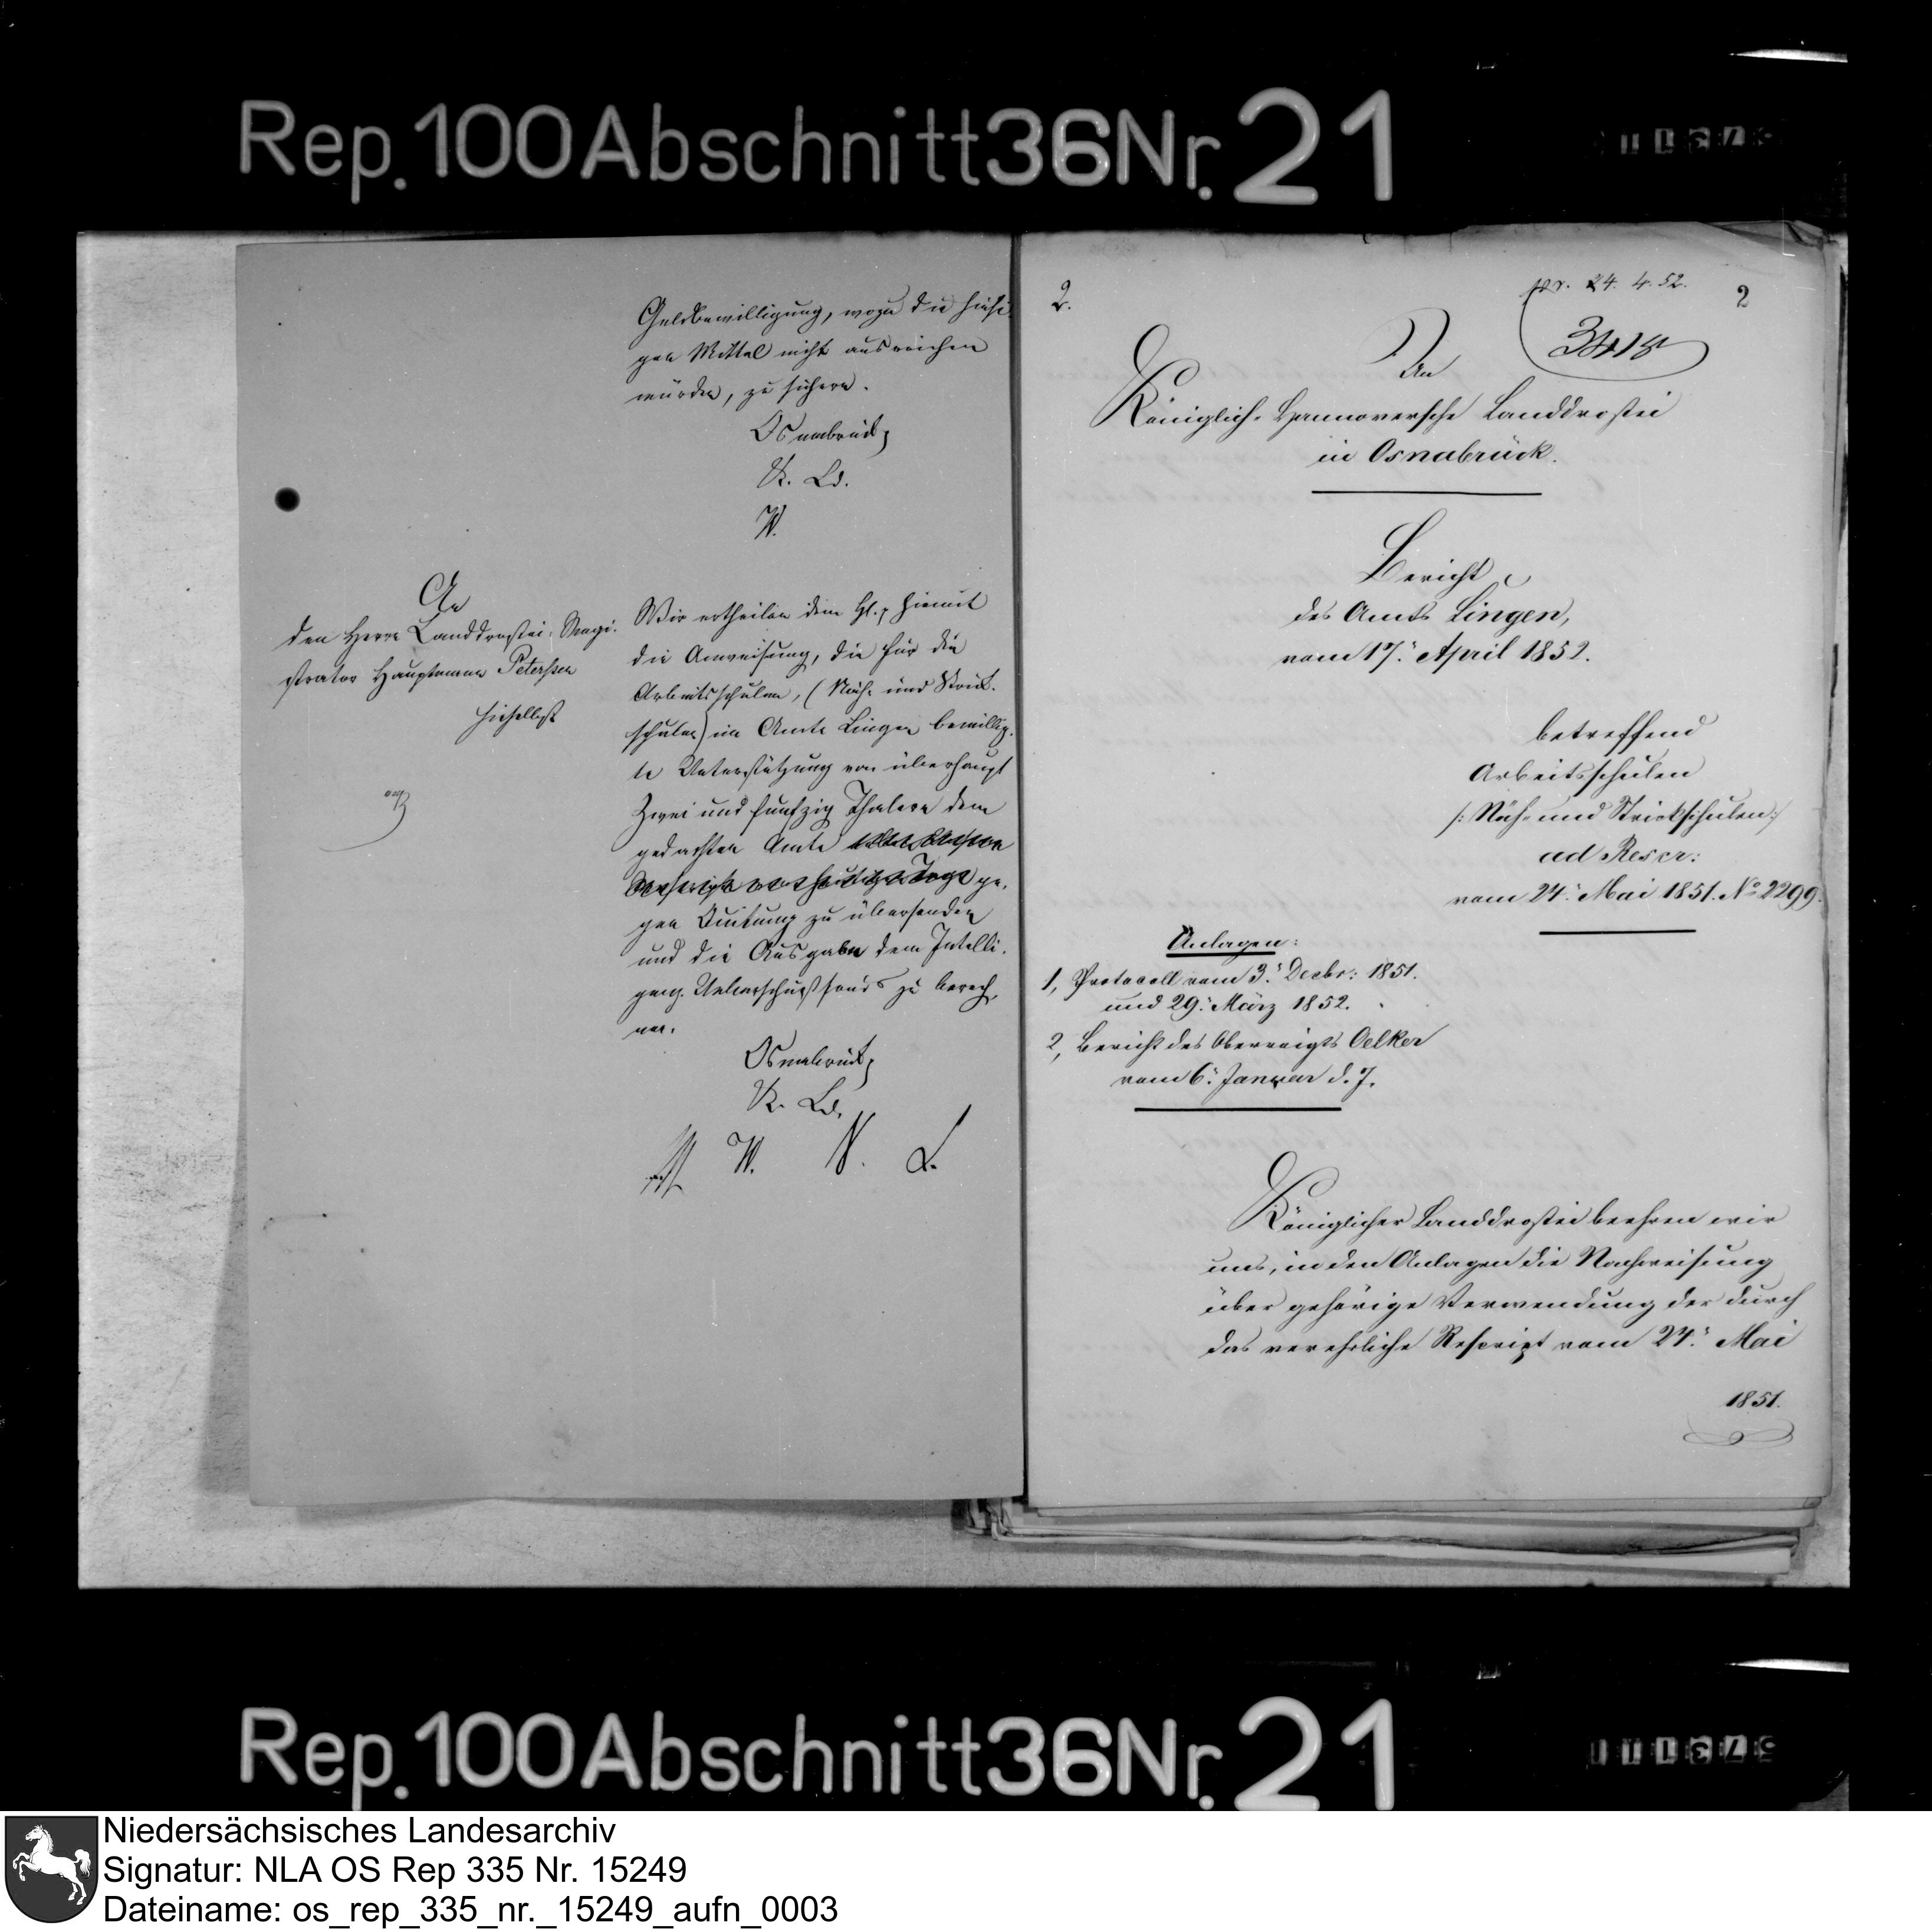 Rep. 100 Abschnitt 36 Nr. 21
Geldbewilligung, wozu die hiesi-
gen Mittel nicht ausreichen
würden, zu sichern.
Osnabrück,
K. Ld.
W.
An
den Herrn Landdrostei-Regi-
strator Hauptmann Peterssen
hieselbst
Wir ertheilen dem H. p. hiemit
die Anweisung, die für die
Arbeitsschulen, (Näh- und Strick-
schulen) im Amte Lingen bewillig-
te Unterstützung von überhaupt
Zwei und funfzig Thalern dem
gedachten Amte
ge-
gen Quitung zu übersenden
und die Ausgabe dem Intelli-
genz-Ueberschußfonds zu berech-
nen.
Osnabrück,
K. Ld.
W. N. L.
2.
pr. 24. 4. 52.
2
An
Königlich-Hannoversche Landdrostei
in Osnabrück.
Bericht
des Amts Lingen,
vom 17. April 1852.
betreffend
Arbeitsschulen
/: Näh- und Strickschulen :/
ad Rescr:
vom 24. Mai 1851. No 2299.
Anlagen:
1, Protocoll vom 3. Decbr: 1851.
und 29. März 1852.
2, Bericht des Obervoigts Oelker
vom 6. Januar d. J.
Königlicher Landdrostei beehren wir
uns, in den Anlagen die Nachweisung
über gehörige Verwendung der durch
das verehrliche Rescript vom 24. Mai
1851.
Rep. 100 Abschnitt 36 Nr. 21
Niedersächsisches Landesarchiv
Signatur: NLA OS Rep 335 Nr. 15249
Dateiname: os_rep_335_nr._15249_aufn_0003